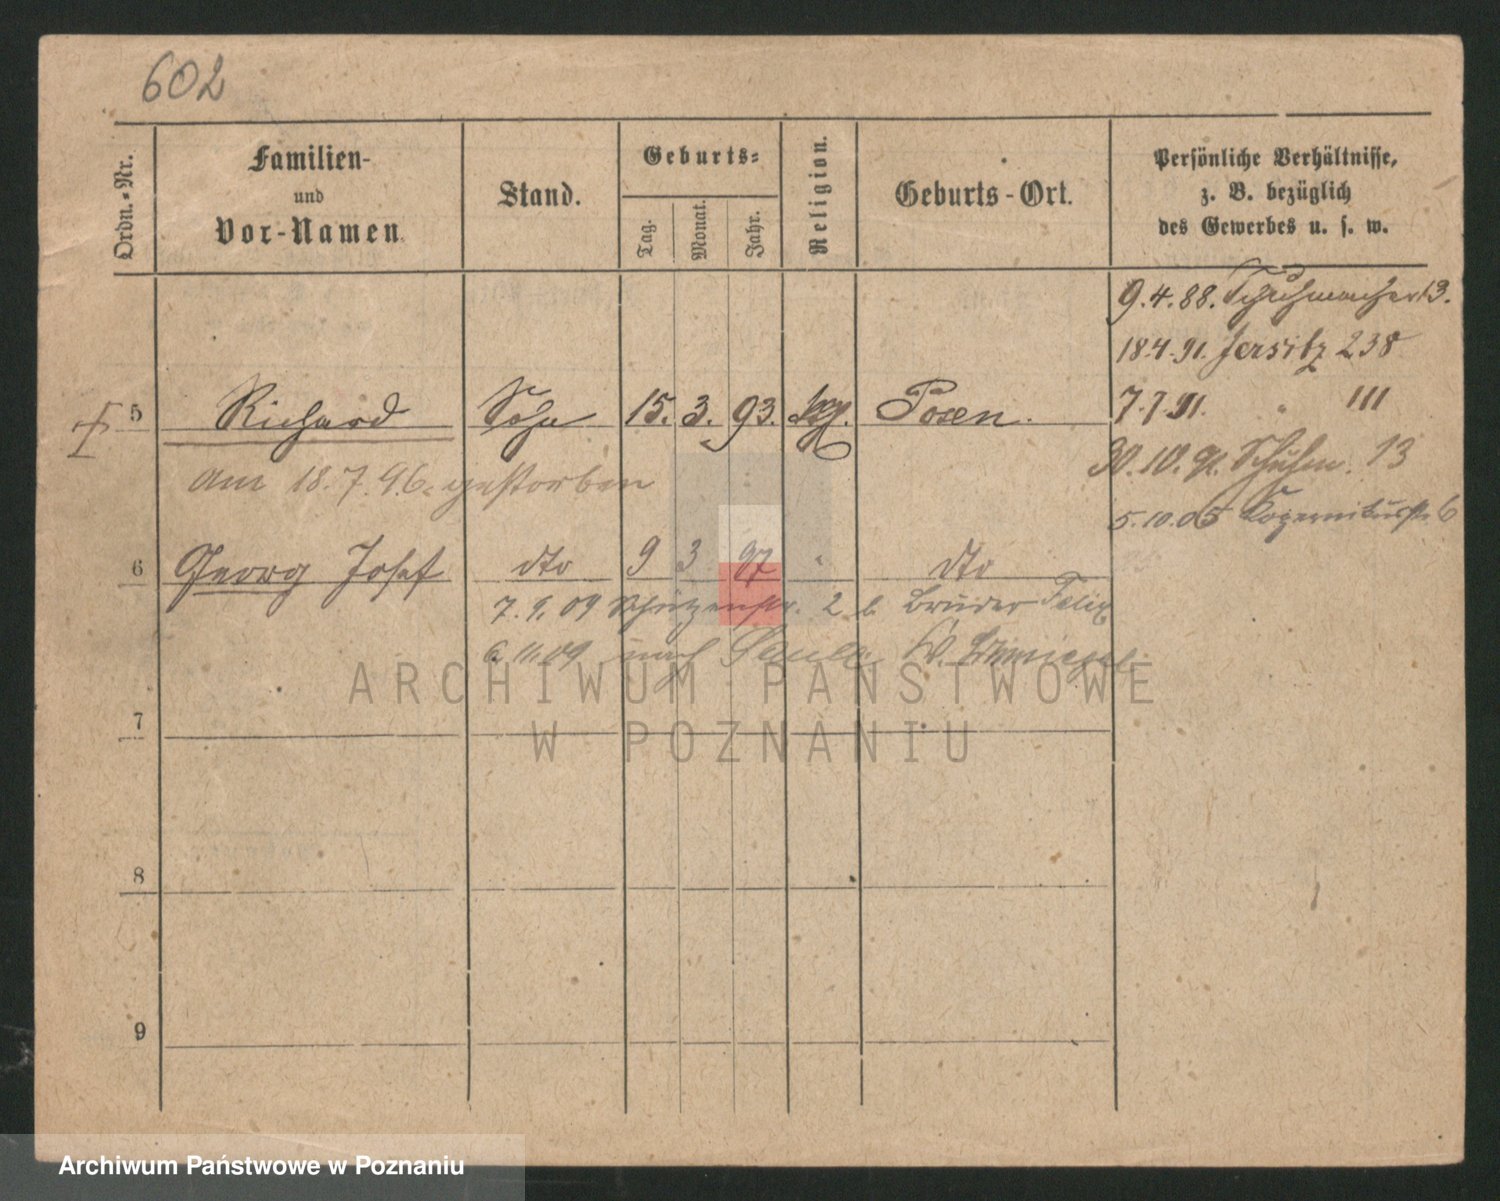 602
Ordn.-Nr.
Familien-
und
Vor-Namen.
Stand.
Geburts-
Tag.
Monat.
Jahr.
Religion.
Geburts-Ort.
Persönliche Verhältnisse,
z. B. bezüglich
des Gewerbes u. s. w.
9.4.88. Schuhmacher 13.
18.4.91. Jersitz 238
7.7.91. " 111
5 Richard Sohn 15. 3. 93. kath. Posen.
30.10.91. Schuhm. 13
am 18.7.96. gestorben
5.10.05 Kopernikusstr. 6
6 Georg Josef dto 9 3 97 " dto
7.9.09 Schützenstr. 2 b. Bruder Felix
6.11.09 nach
7
8
9
ARCHIWUM PAŃSTWOWE
W POZNANIU
Archiwum Państwowe w Poznaniu